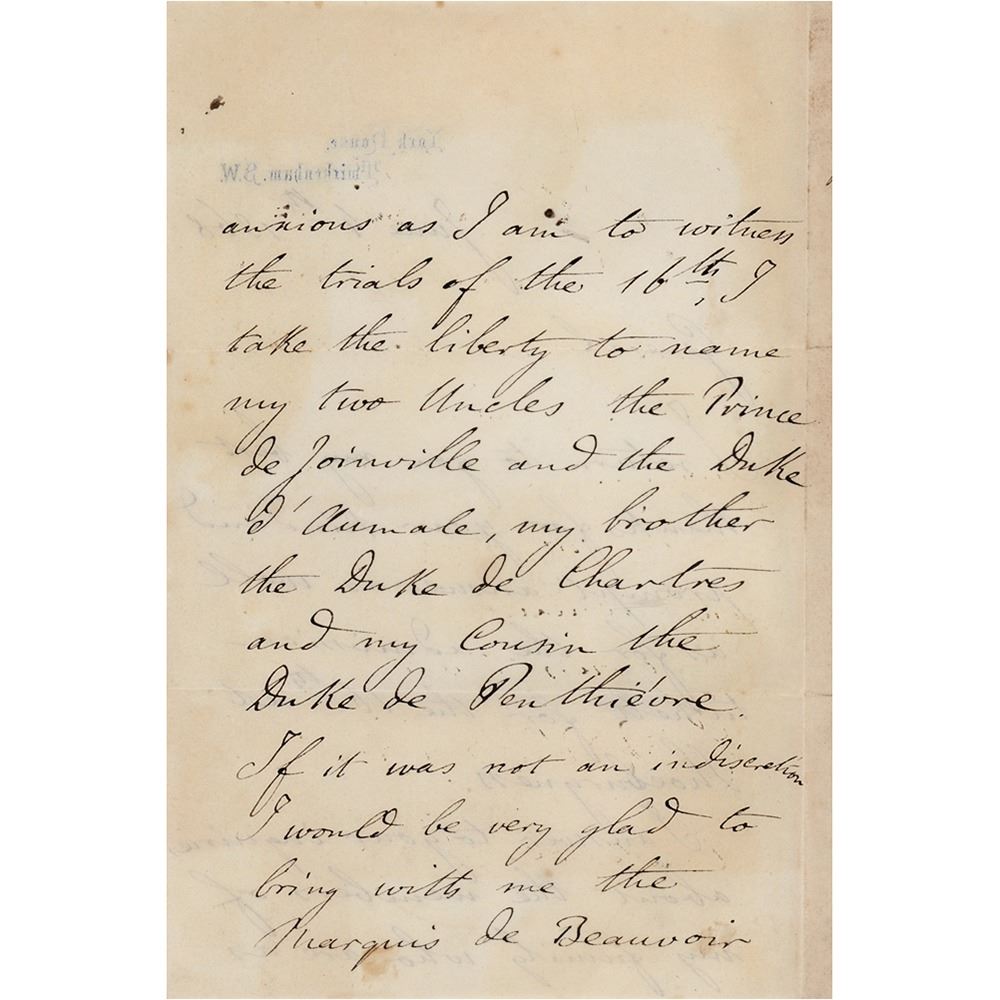 York House,
Twickenham. S.W.
anxious as I am to witness
the trials of the 16th, I
take the liberty to name
my two Uncles the Prince
de Joinville and the Duke
d'Aumale, my brother
the Duke de Chartres
and my Cousin the
Duke de Penthiévre.
If it was not an indiscretion
I would be very glad to
bring with me the
Marquis de Beauvoir